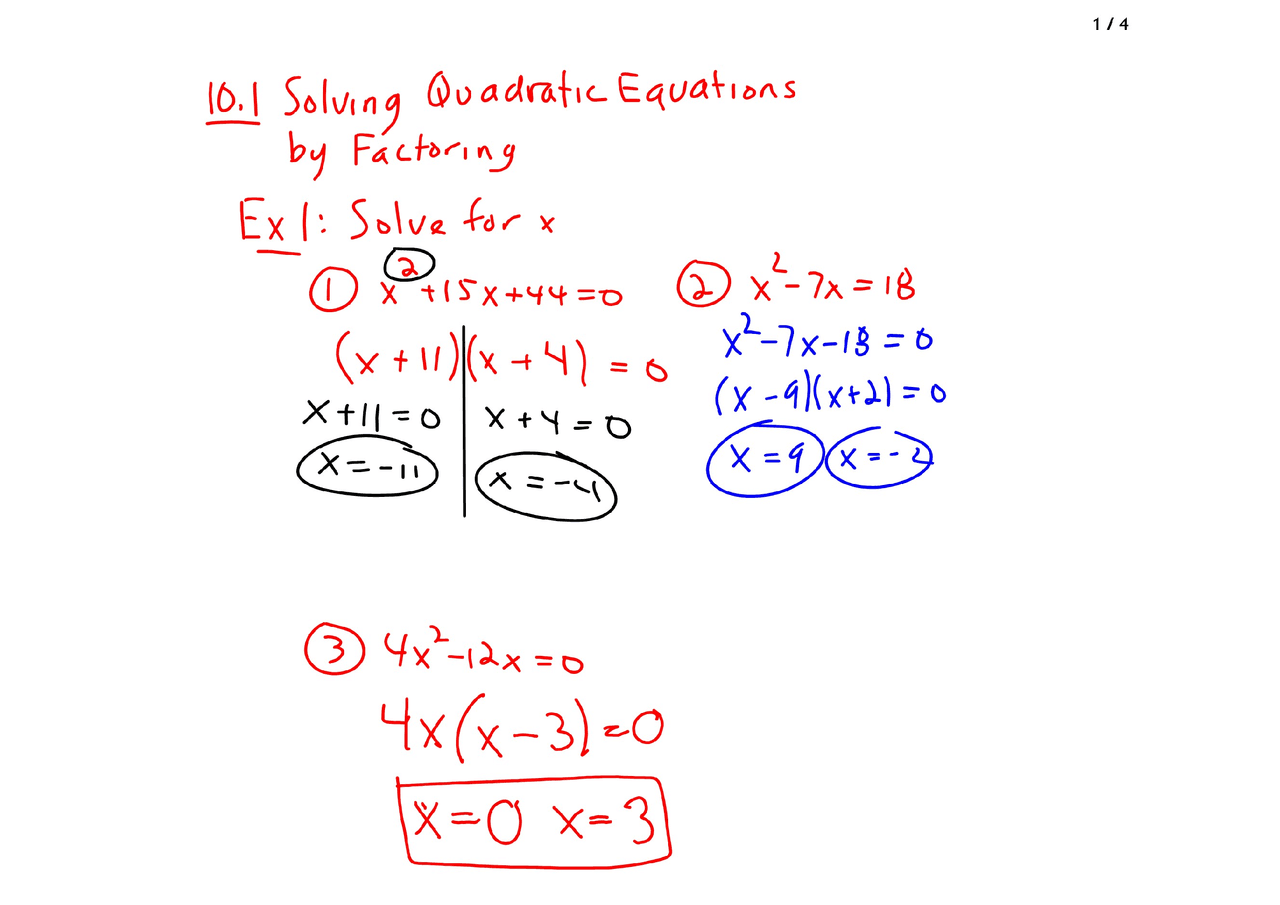 1 / 4
10.1 Solving Quadratic Equations
by Factoring
Ex 1: Solve for x
① x² +15x+44=0
(x + 11)(x + 4) = 0
x+11=0
x + 4 = 0
x = -11
x = -4
② x² - 7x = 18
x² - 7x - 18 = 0
(x - 9)(x+2) = 0
x = 9
x = -2
③ 4x² - 12x = 0
4x(x - 3) = 0
x = 0 x = 3